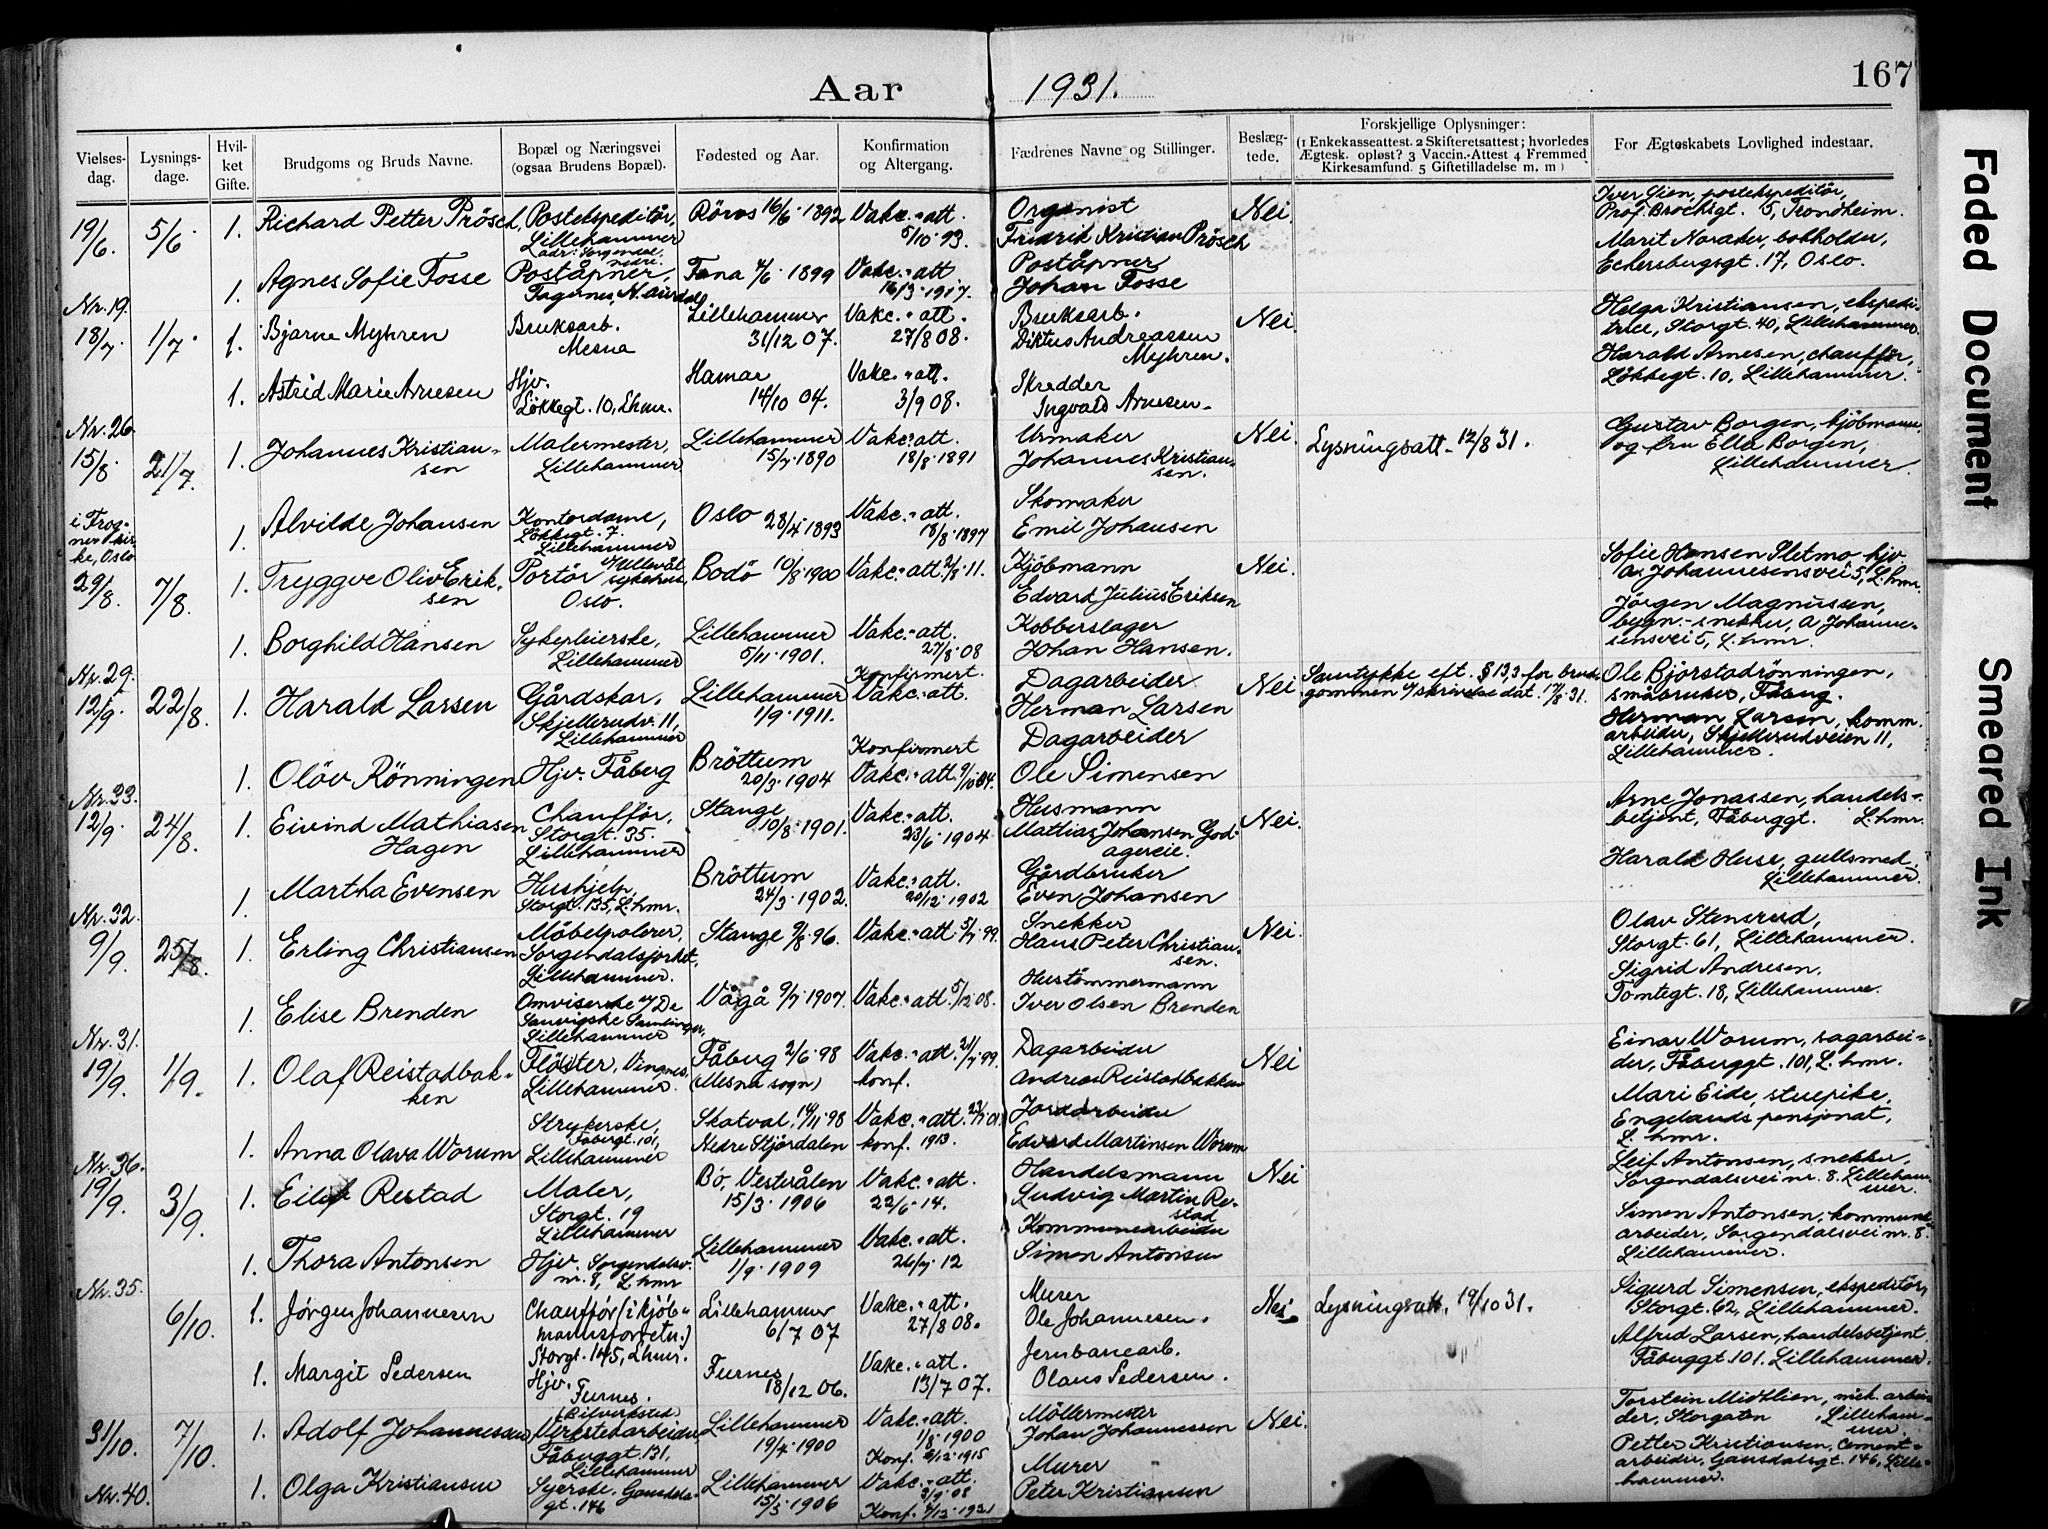 Aar 1931.
167
Vielses-dag.
Lysnings-dage.
Hvil-ket Gifte.
Brudgoms og Bruds Navne.
Bopæl og Næringsvei (ogsaa Brudens Bopæl).
Fødested og Aar.
Konfirmation og Altergang.
Fædrenes Navne og Stillinger.
Beslæg-tede.
Forskjellige Oplysninger:
(1 Enkekasseattest. 2 Skifteretsattest; hvorledes
Ægtesk. opløst? 3 Vaccin.-Attest 4 Fremmed
Kirkesamfund. 5 Giftetilladelse m. m)
For Ægteskabets Lovlighed indestaar.
19/6. 5/6. 1. Richard Petter Prösch, Postekspeditör, Lillehammer adr: Sorgendal nedre. Röros 16/6 1892 Vakc.-att. 5/10 93. Organist Fridrik Kristian Prösch Nei. Iver Lien, postekspeditör, Prof. Brochsgt. 5, Trondheim.
Marit Noraker, bokholder, Eckersbergsgt. 17, Oslo.
Nr. 19. 1. Agnes Sofie Fosse Poståpner, Fagernes, N. aurdal Fana 4/6 1899 Vakc.-att 16/3 1917. Poståpner Johan Fosse
18/7 1/7 1. Bjarne Myhren Bruksarb. Mesna Lillehammer 31/12 07. Vakc.-att. 27/8 08. Bruksarb. Diktus Andreassen Myhren. Nei. Helga Kristiansen, ekspedi-trice, Storgt. 40, Lillehammer.
Harald Arnesen, chaufför, Løkkegt. 10, Lillehammer.
Nr. 26. 1. Astrid Marie Arnesen Hjv. Løkkegt. 10, Lhmr. Hamar 14/10 04. Vakc.-att. 3/9 08. Skredder Ingvald Arnesen
15/8. 21/7. 1. Johannes Kristian-sen Malermester, Lillehammer Lillehammer 15/7 1890 Vakc.-att. 18/8 1891 Urmaker Johannes Kristian-sen. Nei. Lysningsatt. 12/8 31. Gustav Borgen, kjöbmann og fru Elle Borgen, Lillehammer
i Frog-ner kir-ke, Oslo 1. Alvilde Johansen Kontordame, Løkkegt. 7. Lillehammer Oslo 28/4 1893 Vakc.-att. 18/8 1897 Skomaker Emil Johansen
29/8. 7/8. 1. Tryggve Oliv Erik-sen Portör v/Ullevål sykehus, Oslo. Bodö 10/8 1900 Vakc.-att. 2/3 11. Kjöbmann Edvard Julius Eriksen Nei. Sofie Hansen Sletmo hjv. A. Johannesensvei 5, L.hmr.
Jörgen Magnussen, bygn.-snekker, A Johanne-sensvei 5, L.hmr.
Nr. 29. 1. Borghild Hansen Sykepleierske, Lillehammer Lillehammer 5/11 1901. Vakc.-att. 27/8 08 Konfirmert. Kobberslager Johan Hansen.
12/9. 22/8. 1. Harald Larsen Gårdskar, Skjellerudv. 11, Lillehammer Lillehammer 1/9 1911. Vakc.-att. Dagarbeider Herman Larsen Nei Samtykke eft. § 13,3 for brud-gommen v/skrivelse dat. 17/8 31. Ole Björstadrönningen, småbruker, Fåberg.
Herman Larsen, komm.arbeider, Skjellerudveien 11, Lillehammer.
Nr. 33. 1. Olöv Rönningen Hjv. Fåberg Bröttum 20/3 1904 Konfirmert Vakc.-att. 9/10 04. Dagarbeider Ole Simensen
12/9. 24/8. 1. Eivind Mathiasen Hagen Chaufför, Storgt. 35. Lillehammer Stange 10/8 1901. Vakc.-att. 23/6 1904 Husmann Mathias Johansen God-agereie. Nei. Arne Jonassen, handels-betjent, Fåberggt. L.hmr.
Harald Huse, gullsmed, Lillehammer.
Nr. 32. 1. Martha Evensen Hushjelp, Storgt. 135, L.hmr. Bröttum 24/3 1902. Vakc.-att. 20/12 1902 Gårdbruker Even Johansen
9/9. 25/8. 1. Erling Christiansen Möbelpolerer, Sorgendalsjordet, Lillehammer. Stange 9/8 96. Vakc.-att. 5/7 99. Snekker Hans Peter Christian-sen. Nei. Olav Stensrud, Storgt. 61, Lillehammer.
Sigrid Andresen, Tomtegt. 18, Lillehammer.
Nr. 31. 1. Elise Brenden Omviserske v/De Sanvigske Samlinger, Lillehammer Vågå 9/7 1907. Vakc.-att. 5/12 08. Hustömmermann Iver Olsen Brenden
19/9. 1/9. 1. Olaf Reistadbak-ken Flöster, Vingnes, Lillehammer. Fåberg 2/6 98 (Mesna sogn) Vakc.-att. 24/7 99. konf. Dagarbeider Andreas Reistadbakken Nei Einar Worum, sagarbei-der, Fåberggt. 101, L.hmr.
Mari Eide, stuepike, Engelands pensjonat, L.hmr.
Nr. 36. 1. Anna Olava Worum Strykerske, Fåberggt. 101, Lillehammer Skatval 14/11 98 Nedre Stjördalen Vakc.-att. 23/7 01. konf. 1913. Jordarbeider Edvard Martinsen Worum
19/9. 3/9. 1. Eilif Restad Maler, Storgt. 19 Lillehammer Bö, Vesterålen 15/3 1906 Vakc.-att. 22/6 14. Handelsmann Ludvig Martin Re-stad Nei Leif Antonsen, snekker, Sorgendalsvei nr. 8. Lilleham-mer.
Simen Antonsen, kommune-arbeider, Sorgendalsvei nr. 8. Lillehammer.
Nr. 35. 1. Thora Antonsen Hjv. Sorgendalsv. nr. 8, L.hmr Lillehammer 1/9 1909 Vakc.-att. 26/9 12 Kommunearbeider Simen Antonsen
6/10. 1. Jörgen Johannesen Chauffør (i kjöb-mannsforretn.) Storgt. 145, Lhmr. Lillehammer 6/7 07 Vakc.-att. 27/8 08. Murer Ole Johannesen. Nei Lysningsatt. 19/10 31. Sigurd Simensen, ekspeditör, Storgt. 62, Lillehammer.
Alfred Larsen, handelsbetjent. Fåberggt 101. Lillehammer.
1. Margit Pedersen Hjv. Furnes. Furnes 18/12 06. Vakc.-att. 13/7 07. Jernbanearb. Olaus Pedersen.
31/10. 7/10. 1. Adolf Johannesen (Bilverksted) Verkstedarbeider, Fåberggt. 131, Lillehammer Lillehammer 19/4 1900 Vakc.-att. 1/8 1900 Konf. 5/12 1915 Möllermester Johan Johannessen Nei. Torstein Midtlien, mek. arbei-der, Storgaten, Lilleham-mer.
Petter Kristiansen, cement-arbeider, Gausdalsgt. 146, Lille-hammer.
Nr. 40. 1. Olga Kristiansen Syerske, Gausdals-gt. 146 Lillehammer 15/3 1906 Vakc.-att. 3/9 08 Konf. 4/12 1921 Murer Peter Kristiansen
Faded Document
Smeared Ink